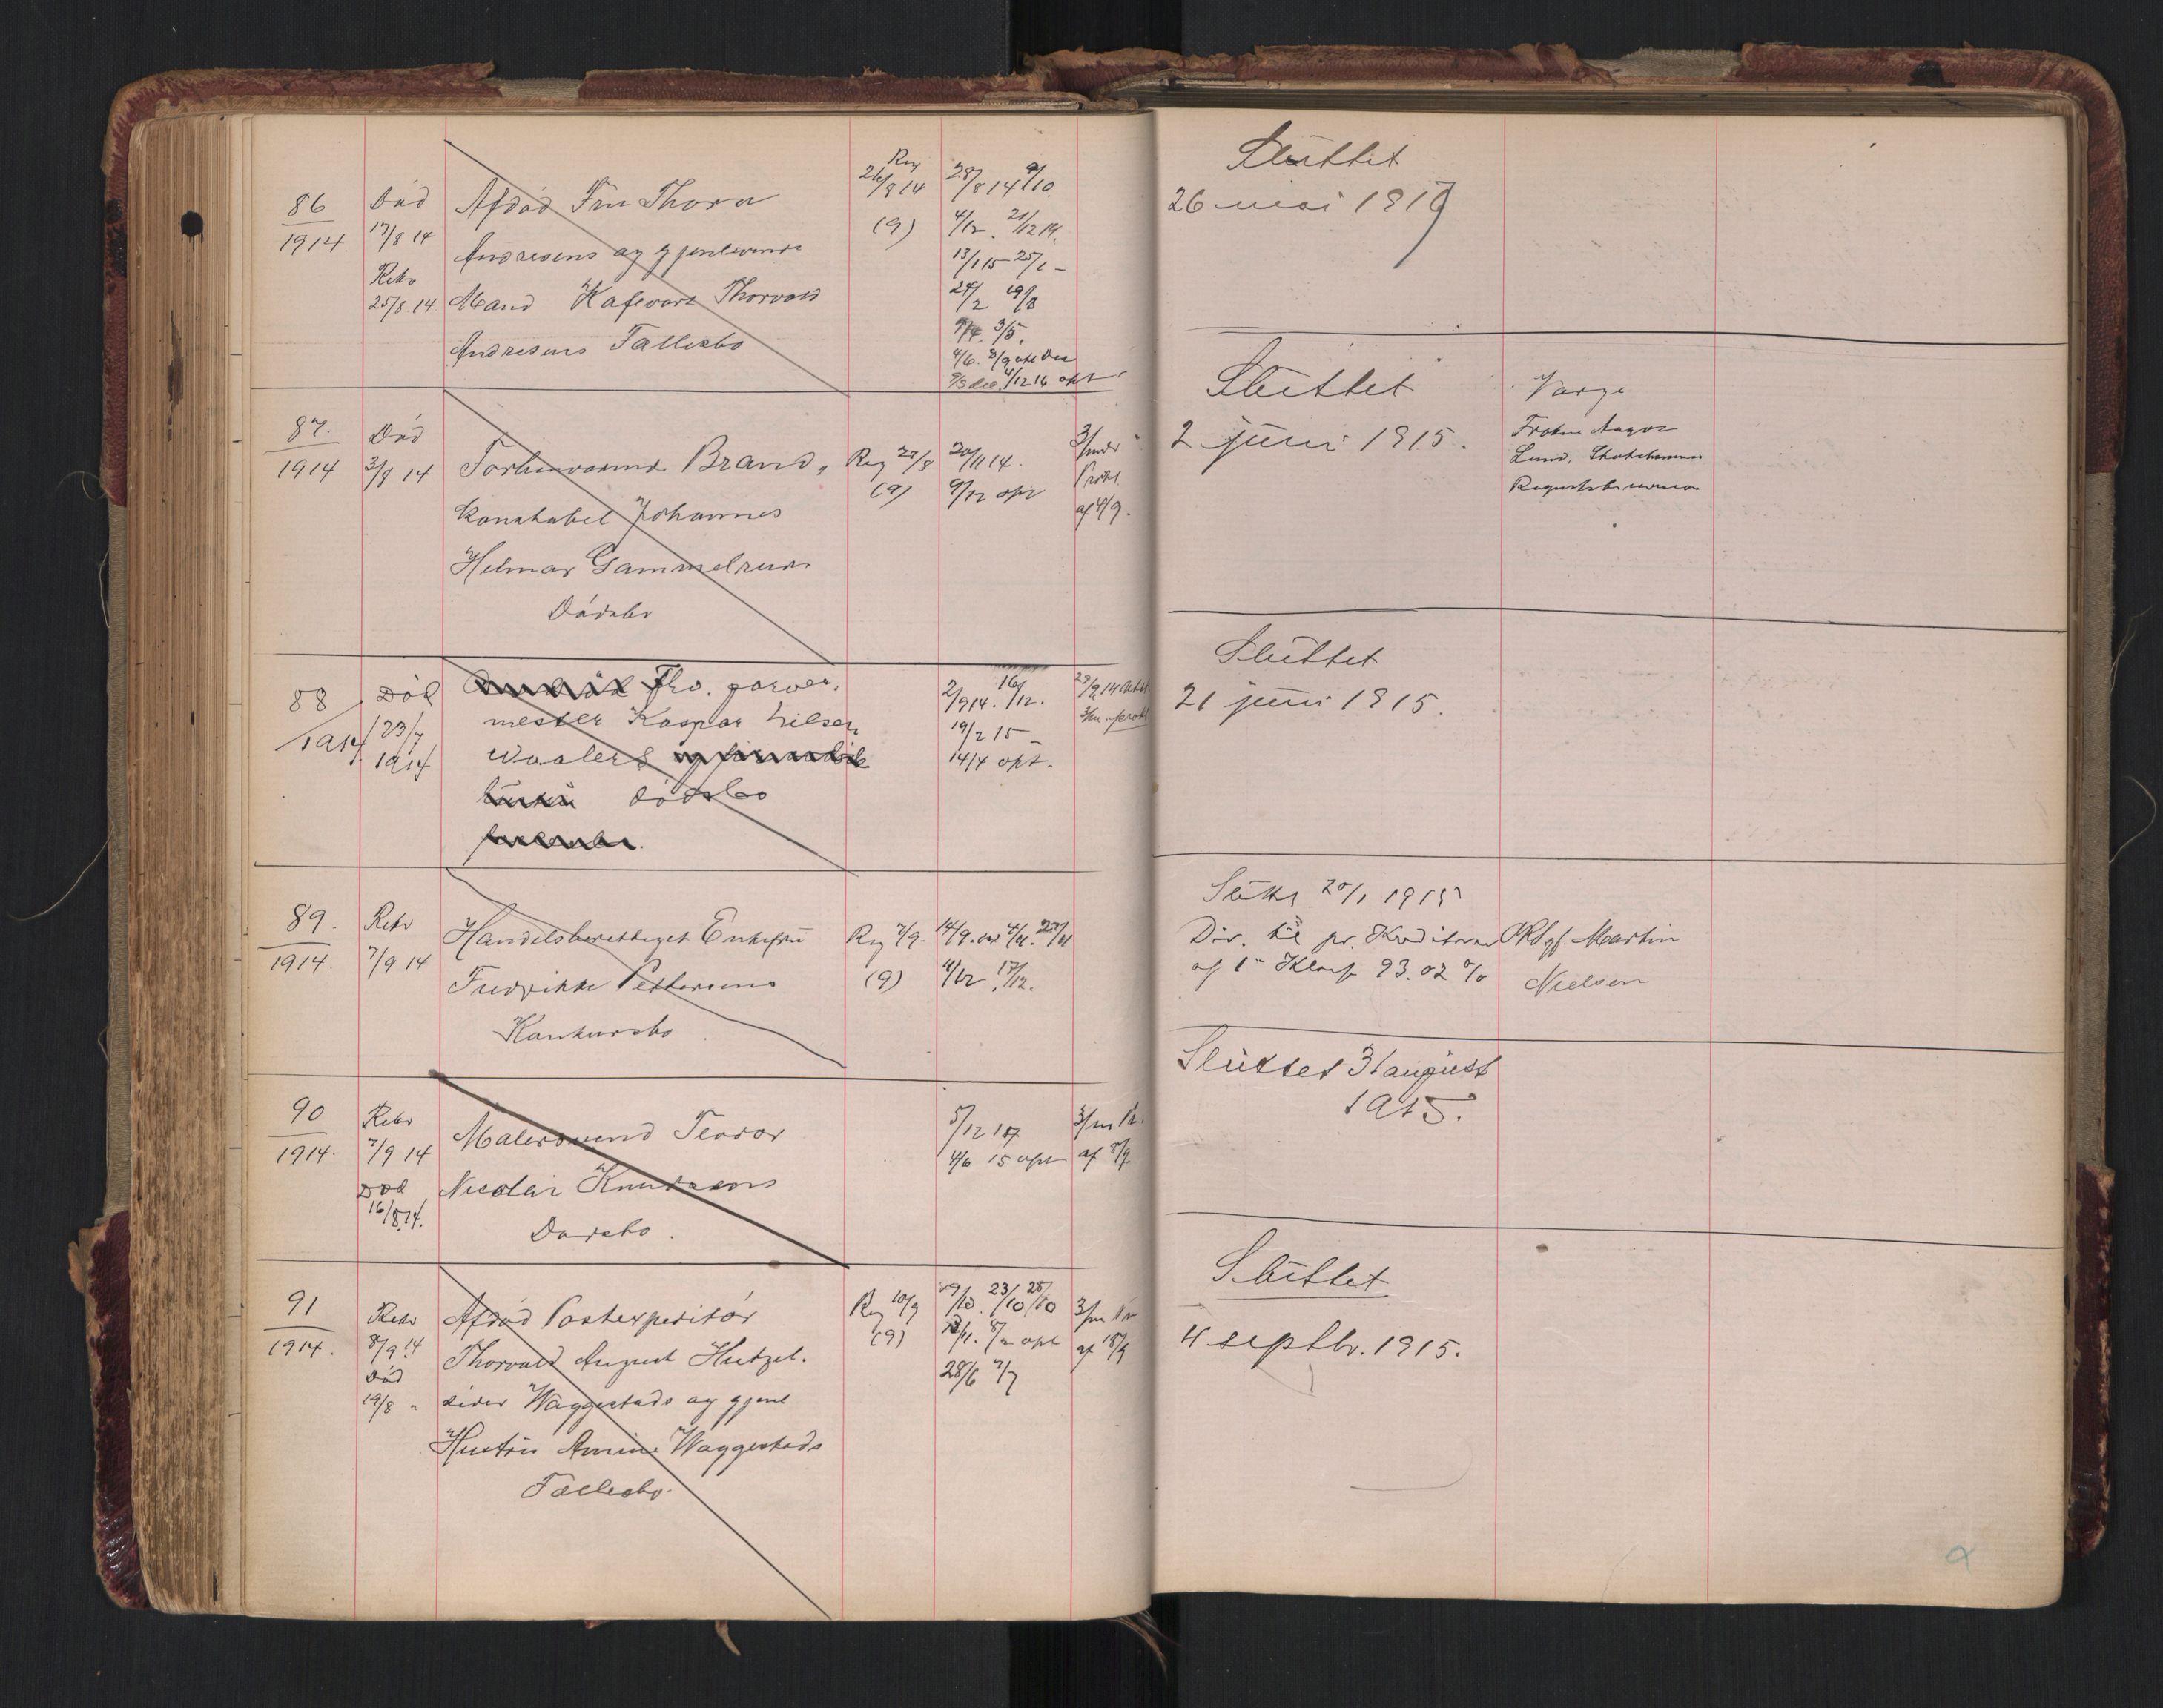 86
1914.
Død
17/8 14
Rekv
25/8 14.
Afdød Fru Thora
Andresens og gjenlevende
Mand Thorvald
Andresens Fællesbo
Reg
26/8 14
(9)
28/8 14 9/10.
4/12. 21/12 14.
13/1 15 25/1 –
24/2 19/3
9/4. 3/5.
4/6. 3/9
4/12 16 opt
Sluttet
26 mai 1917
87.
1914
Død
3/8 14
Forhenværende Brand-
konstabel Johannes
Helmar Gammelruds
Dødsbo
Reg 27/8
(9)
20/11 14.
9/12 opt
3/mdr
Prokl.
af 4/9.
Sluttet
2 juni 1915.
Værge
Frøken Aagot
Lund,
88
1914
Død
23/7
1914
Fhv. garver-
mester Kaspar Nilsen
Waalers
dødsbo
2/9 14. 16/12.
19/2 15 –
14/4 opt.
3/m. prokl.
Sluttet
21 juni 1915.
89.
1914.
Rekv
7/9 14
Handelsberettiget Enkefru
Fredrikke Pettersens
Konkursbo
Reg 7/9.
(9)
4/12 17/12.
Slutt 20/1 1915
Div. til pr. Kreditorer
af 1ste Klasse 93.02 %
ORsgf. Martin
Nielsen
90
1914.
Rekv
7/9 14
Død
16/8 14.
Malersvend Teodor
Nicolai Knudsens
Dødsbo.
5/12 14
4/6 15 opt
3/m Pr.
af 8/9.
Sluttet 31 august
1915.
91
1914.
Rekv
8/9 14
Død
19/8 "
Afdød Postexpeditør
Thorvald August Hutzel-
sider Waggestads og gjenl
Hustru Amine Waggestads
Fællesbo.
Reg 10/9
(9)
19/10. 23/10 28/10
28/6 7/7
3/m Pr
af 18/9
Sluttet
4 septbr. 1915.